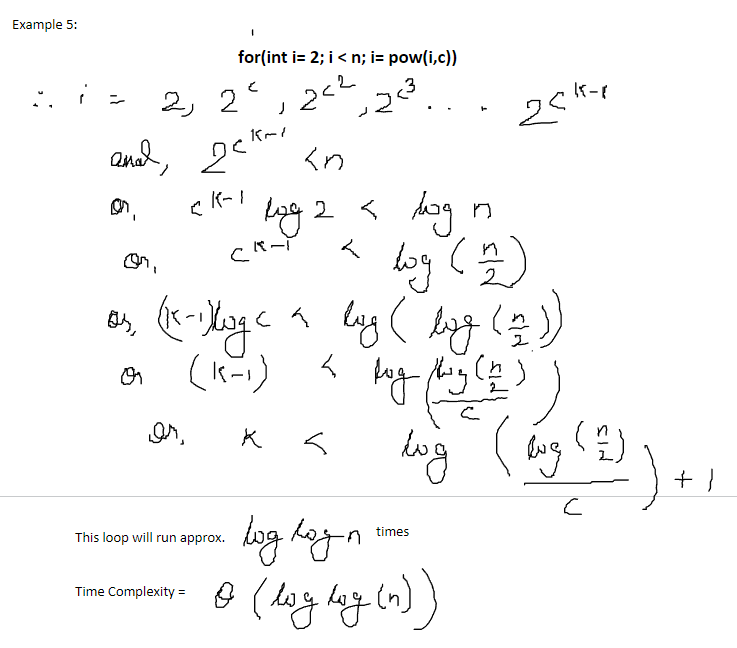 Example 5:
for(int i= 2; i < n; i= pow(i,c))
∴ i = 2, 2^c, 2^c^2, 2^c^3 . . . . 2^c^k-1
and, 2^c^k-1 < n
or, c^k-1 log 2 < log n
or, c^k-1 < log (n/2)
or, (k-1)log c < log( log (n/2))
or (k-1) < log (log(n/2)/c)
or, k < log (log(n/2)/c) + 1
This loop will run approx. log log n times
Time Complexity = θ (log log(n))